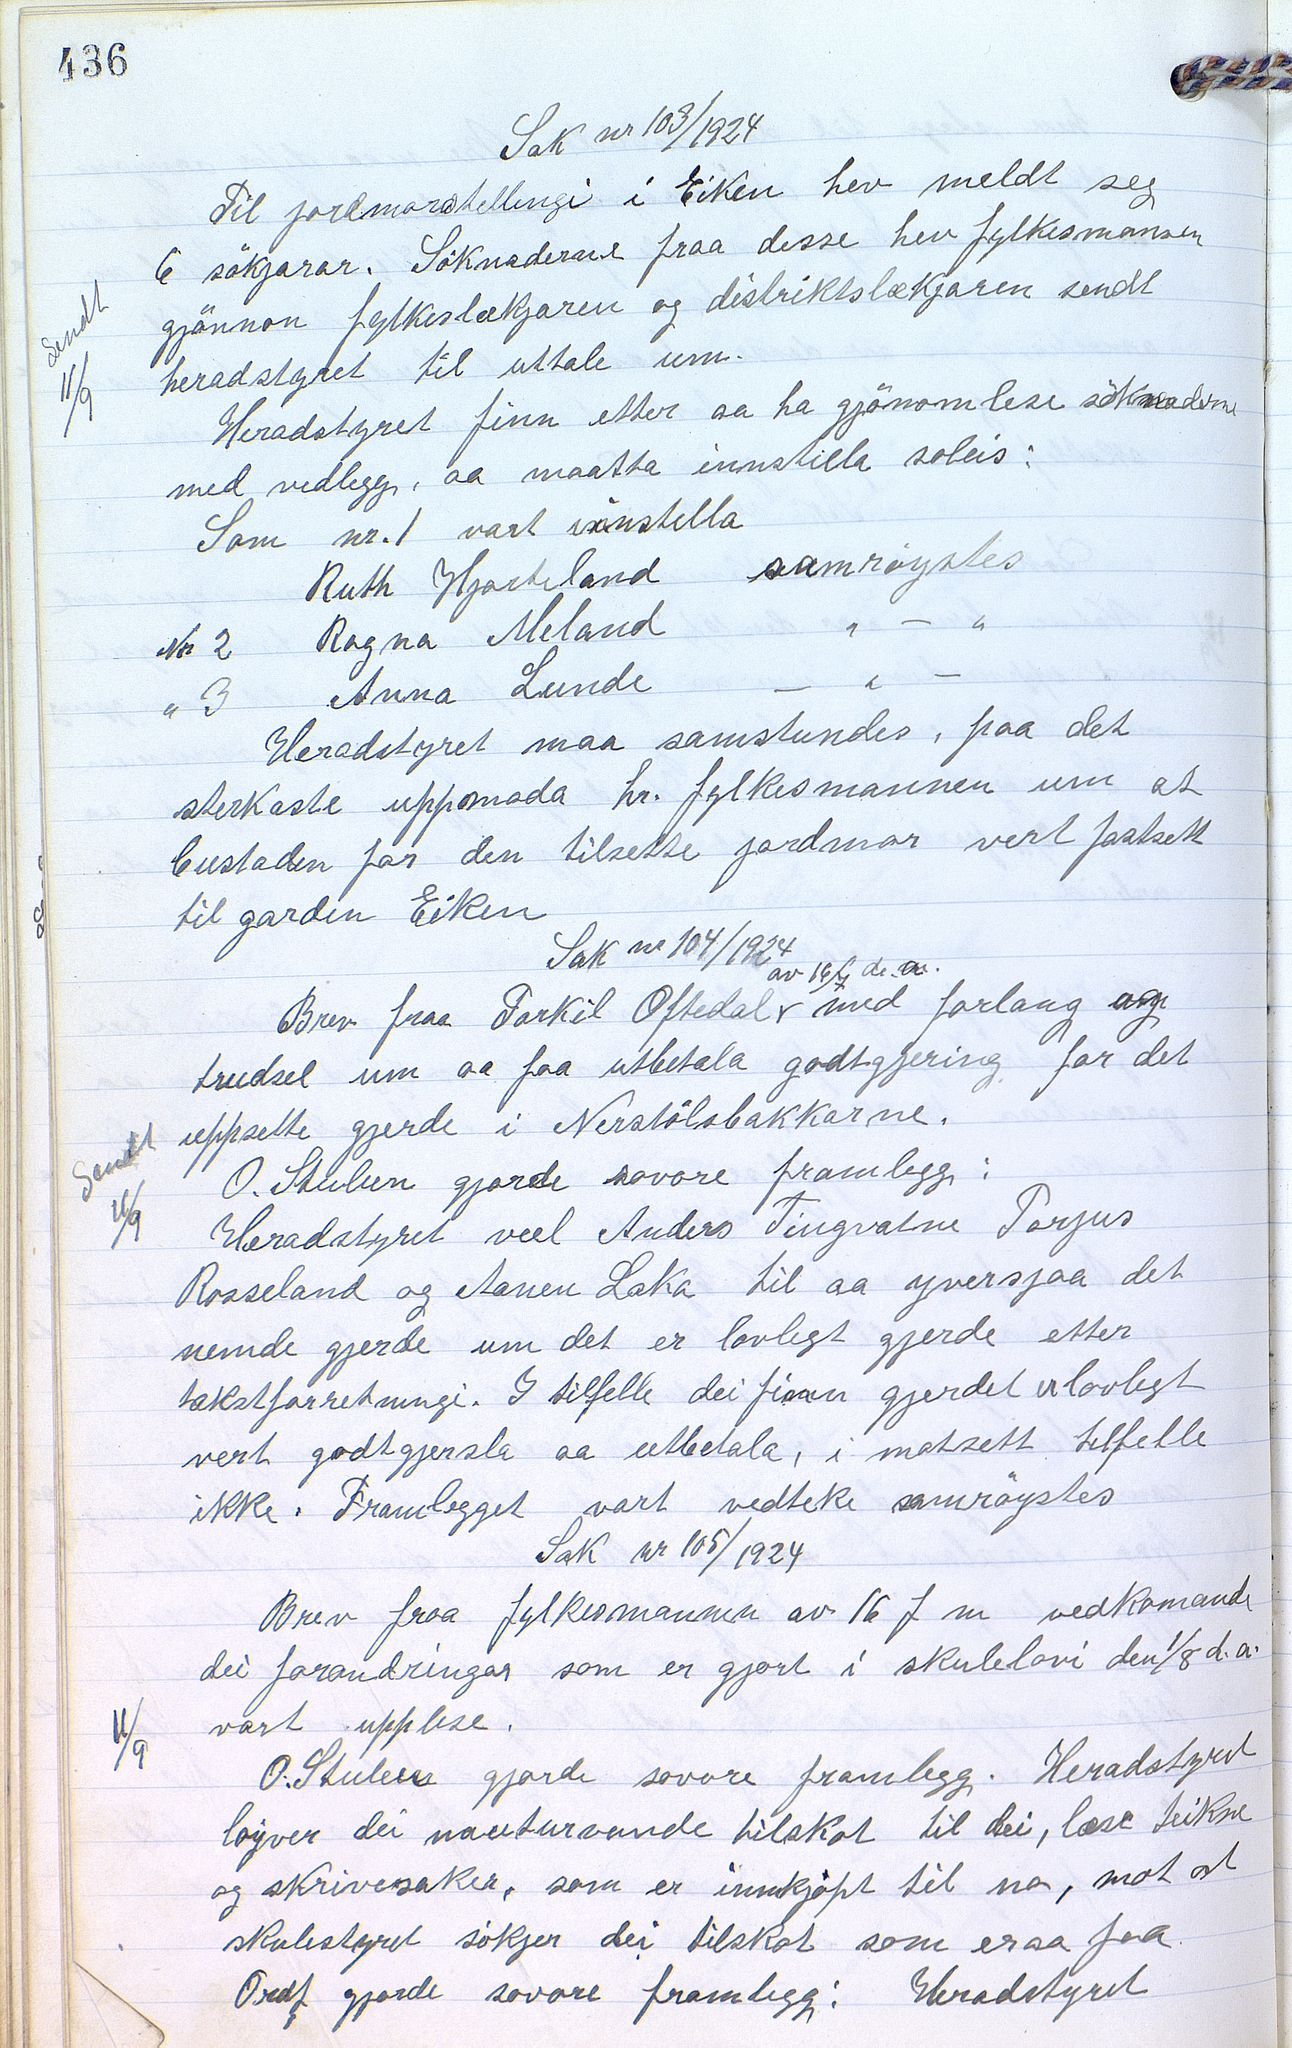 436
Sak nr 103/1924
Til jordmorstellingi i Eiken hev meldt seg
6 sökjarar. Söknaderne fraa desse hev fylkesmannen
gjönnon fylkeslækjaren og distriktslækjaren sendt
Sendt
11/9
heradstyret til uttale um.
Heradstyret finn etter aa ha gjönomlese söknaderne
med vedlegg, aa maatta innstilla soleis:
Som nr. 1 vart innstella
Ruth Hjorteland samröystes
Nr 2 Ragna Meland " — "
" 3 Anna Lunde — " —
Heradstyret maa samstundes, paa det
sterkaste uppmoda hr. fylkesmannen um at
bustaden for den tilsette jordmor vert fastsett
til garden Eiken
Sak nr 104/1924
av 16/7 d. a.
Brev fraa Torkil Oftedal med forlang og
trudsel um aa faa utbetala godtgjering for det
uppsette gjerde i Nerstölsbakkarne.
Sendt
11/9
O. Stuleen gjorde sovore framlegg:
Heradstyret veel Anders Tingvatne Torjus
Rosseland og Aanen Laka til aa yversjaa det
nemde gjerde um det er lovlegt gjerde etter
takstforretningi. I tilfelle dei finn gjerdet ulovlegt
vert godtgjersla aa utbetala, i motsett tilfelle
ikke. Framlegget vart vedteke samröystes
Sak nr 105/1924
Brev fraa fylkesmannen av 16 f m vedkomande
dei forandringar som er gjort i skulelovi den 1/8 d. a.
11/9
vart upplese.
O. Stuleen gjorde sovore framlegg. Heradstyret
löyver dei nauturvande tilskot til dei, lese teikne
og skrivesaker, som er innkjöpt til no, mot at
skulestyret sökjer dei tilskot som er aa faa.
Ordf gjorde sovore framlegg: Heradstyret